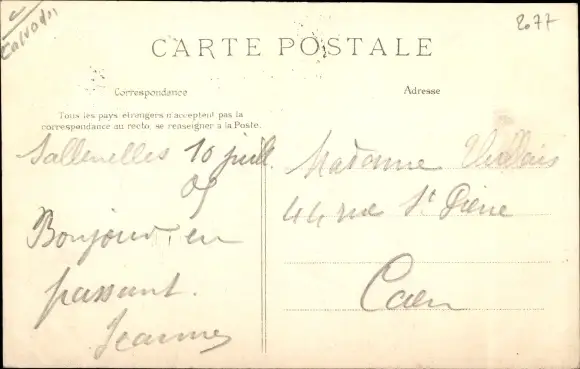 Calvados
2077
CARTE POSTALE
Correspondance
Tous les pays étrangers n'acceptent pas la
correspondance au recto, se renseigner à la Poste.
Sallenelles 10 juill
05
Bonjour, en
passant.
Jeanne
Adresse
Madame
44 rue St Pierre
Caen